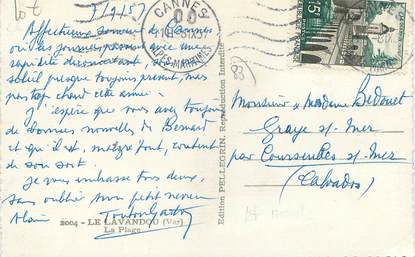 Lot
7/9/57
Affectueux souvenir de Cannes
où nous sommes passés avec une
rapidité déconcertante, et
soleil presque toujours présent, mais
pas trop chaud cette année.
J'espère que vous avez toujours
de bonnes nouvelles de Bernard
et qu'il est, malgré tout, content
de son sort.
Je vous embrasse tous deux,
sans oublier mon petit neveu
Alain
Tonton Gaston
2004 - LE LAVANDOU (Var)
La Plage
Edition PELLEGRIN, Reproduction Interdite
CANNES
ALPES-MARITIMES
15F
83
Monsieur & Madame Bedouet
Graye s/ Mer
par Courseulles s/ Mer
(Calvados)